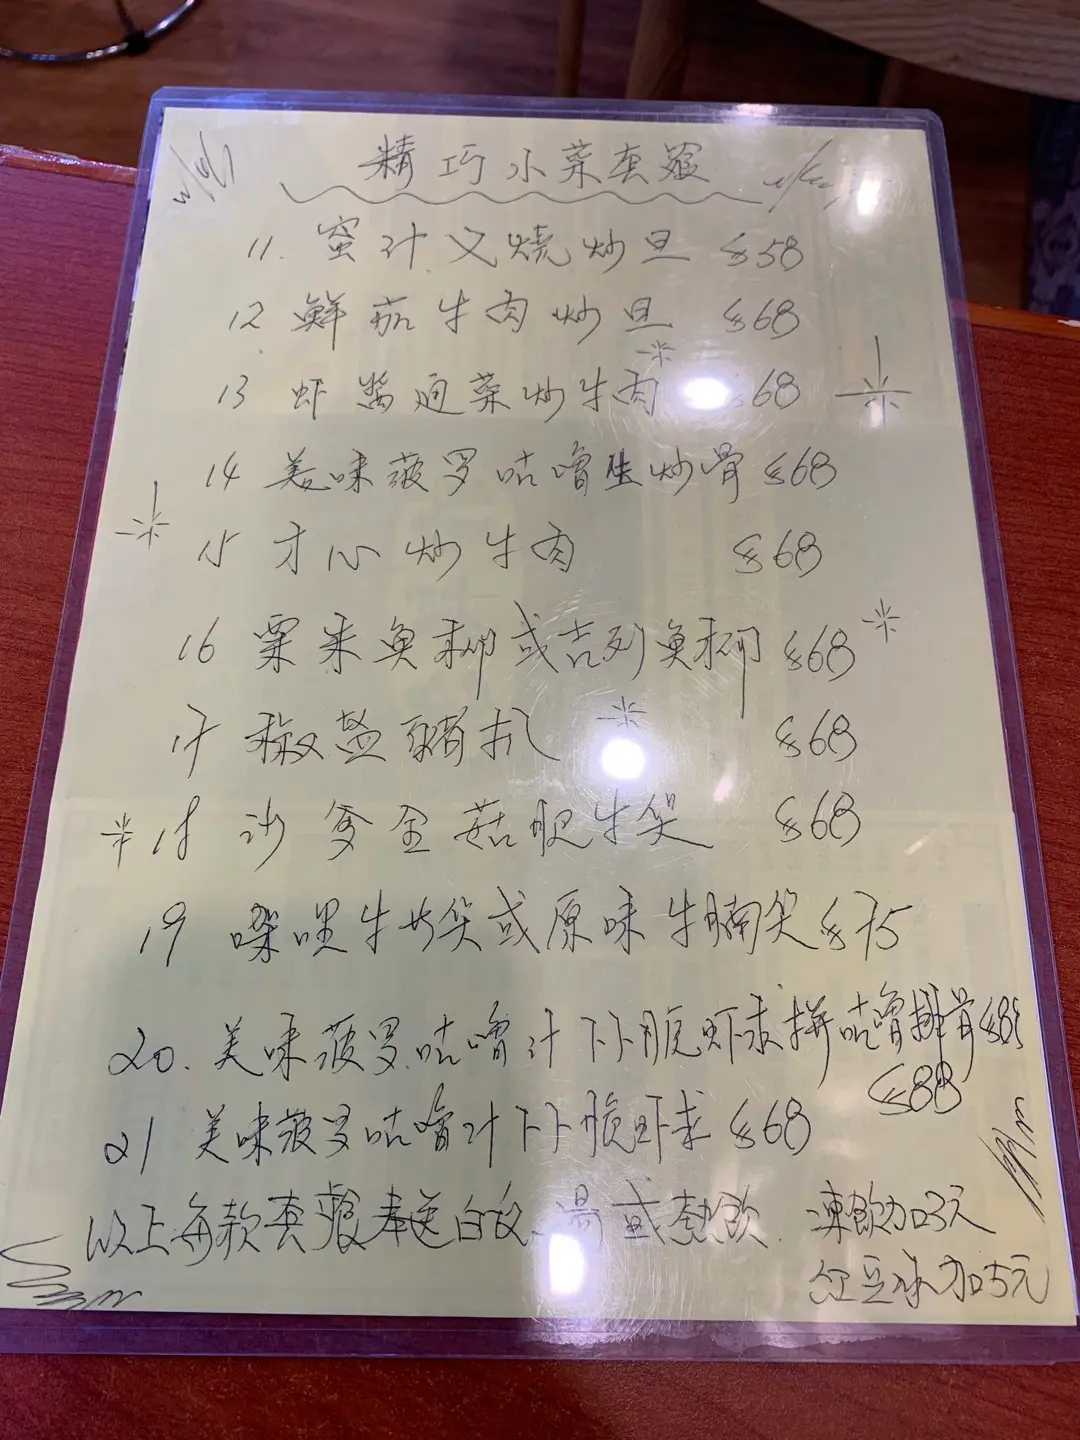 精巧小菜套餐
11. 蜜汁叉燒炒旦 $58
12 鮮茄牛肉炒旦 $68
13 虾醬通菜炒牛肉 $68
14 美味菠罗咕嚕生炒骨 $68
15 才心炒牛肉 $68
16 粟米魚柳或吉列魚柳 $68
17 椒盐豬扒 $68
18 沙爹金菇肥牛煲 $68
19 喋哩牛煲或原味牛腩煲 $75
20. 美味菠罗咕嚕汁卜卜脆虾求拼咕嚕排骨 $88
$88
21 美味菠罗咕嚕汁卜卜脆虾求 $68
以上每款套餐奉送白飯、湯或热飲 凍飲加3元
红豆冰加5元